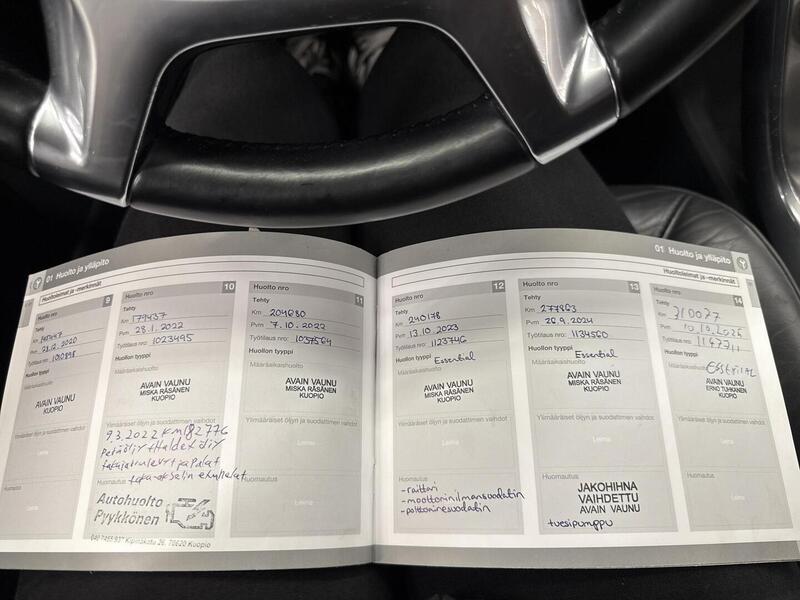 01 Huolto ja ylläpito
Huoltoleimat ja -merkinnät
Huolto nro 9
Tehty
Km
Pvm 21.12.2020
Työtilaus nro: 1010898
Huollon tyyppi
Määräaikaishuolto
AVAIN VAUNU
KUOPIO
Ylimääräiset öljyn ja suodattimen vaihdot
Leima
Huomautus
Leima
Huolto nro 10
Tehty
Km 179437
Pvm 28.1.2022
Työtilaus nro: 1023495
Huollon tyyppi
Määräaikaishuolto
AVAIN VAUNU
MISKA RÄSÄNEN
KUOPIO
Ylimääräiset öljyn ja suodattimen vaihdot
9.3.2022 KM 182776
Peräöljy + Haldexöljy
takajarrulevyt ja palat
taka-akselin
Autohuolto
Pyykkönen
040 7455 937 Kipinäkatu 26, 70620 Kuopio
Huolto nro 11
Tehty
Km 204680
Pvm 7.10.2022
Työtilaus nro: 1037564
Huollon tyyppi
Määräaikaishuolto
AVAIN VAUNU
MISKA RÄSÄNEN
KUOPIO
Ylimääräiset öljyn ja suodattimen vaihdot
Leima
Huomautus
Leima
01 Huolto ja ylläpito
Huoltoleimat ja -merkinnät
Huolto nro 12
Tehty
Km 240178
Pvm 13.10.2023
Työtilaus nro: 1123746
Huollon tyyppi Essential
Määräaikaishuolto
AVAIN VAUNU
MISKA RÄSÄNEN
KUOPIO
Ylimääräiset öljyn ja suodattimen vaihdot
Leima
Huomautus
- raittari
- moottorinilmansuodatin
- polttoainesuodatin
Huolto nro 13
Tehty
Km 277863
Pvm 26.9.2024
Työtilaus nro: 1134560
Huollon tyyppi
Essential
Määräaikaishuolto
AVAIN VAUNU
MISKA RÄSÄNEN
KUOPIO
Ylimääräiset öljyn ja suodattimen vaihdot
Leima
Huomautus
JAKOHIHNA
VAIHDETTU
AVAIN VAUNU
+vesipumppu
Huolto nro 14
Tehty
Km 310077
Pvm
Työtilaus nro:
Huollon tyyppi
Määräaikaishuolto
AVAIN VAUNU
ERNO TUHKANEN
KUOPIO
Ylimääräiset öljyn ja suodattimen vaihdot
Leima
Huomautus
Leima